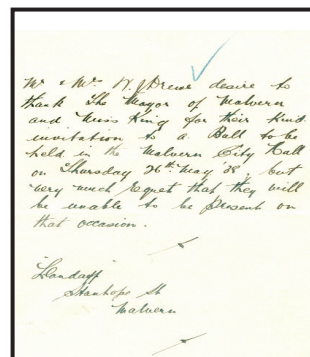 Mr & Mrs H. J. Drew desire to
thank The Mayor of Malvern
and Miss King for their kind
invitation to a Ball to be
held in the Malvern City Hall
on Thursday 26th May '38, but
very much regret that they will
be unable to be present on
that occasion.
"Llandaff"
Stanhope St
Malvern